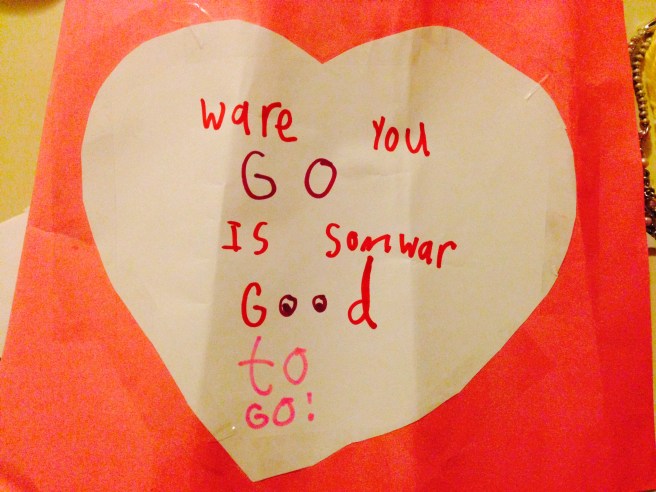 ware you
GO
IS somwar
Good
to
GO!